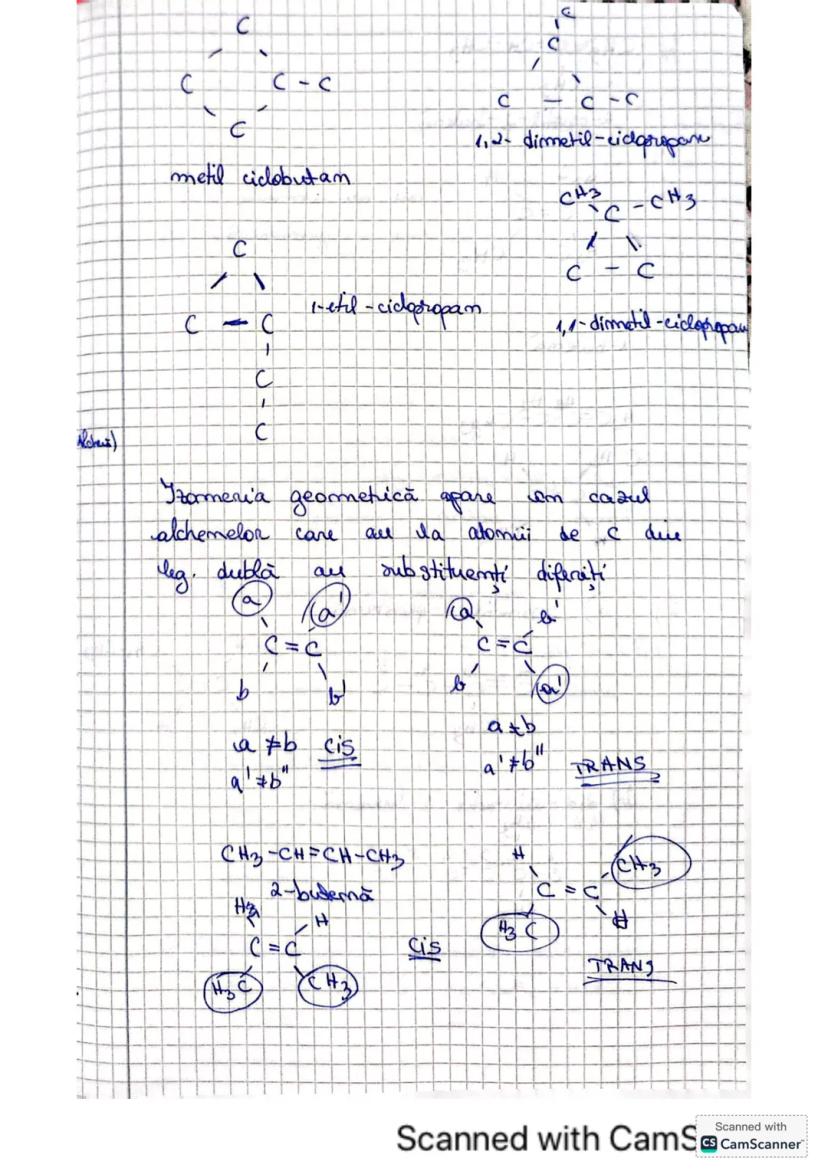 C
C
C
C - C
C
metil ciclobutan
C
C
C - C - C
1,2- dimetil-ciclopropan
CH3
C - CH3
C - C
1,1-dimetil-ciclopropan
C
C - C
C
C
1-etil-ciclopropan
Izomeria geometrică apare în cazul
alchenelor care au la atomii de C din
leg. dublă au substituenți diferiți
a a'
C = C
b b'
a ≠ b cis
a' ≠ b"
a b'
C = C
b a'
a ≠ b
a' ≠ b" TRANS
CH3-CH=CH-CH3
2-butenă
H
C = C
H3C CH3
cis
H CH3
C = C
H3C H
TRANS
Scanned with CamS
Scanned with
CS CamScanner